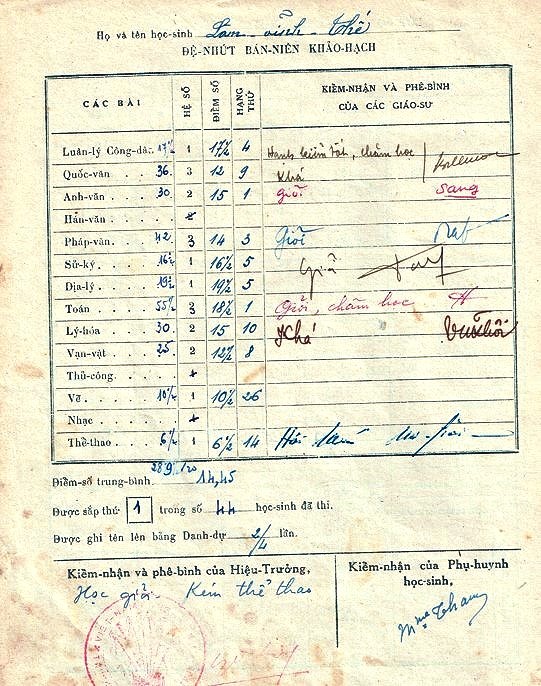 Họ và tên học-sinh Lâm - vĩnh - Thế
ĐỆ-NHỨT BÁN-NIÊN KHẢO-HẠCH
CÁC BÀI HỆ SỐ ĐIỂM SỐ HẠNG THỨ KIỂM-NHẬN VÀ PHÊ-BÌNH CỦA CÁC GIÁO-SƯ
Luân-lý Công-dân. 17½ 1 17½ 4 Hạnh kiểm tốt, chăm học
Quốc-văn . . . . 36. 3 12 9 Khá
Anh-văn . . . . 30 2 15 1 giỏi. Sang
Hán-văn . . . . 2
Pháp-văn. . . . 42 3 14 3 Giỏi
Sử-ký. . . . . 16½ 1 16½ 5 Giỏi
Địa-lý . . . . 19½ 1 19½ 5
Toán . . . . . 55½ 3 18½ 1 Giỏi, chăm học
Lý-hóa . . . . 30 2 15 10 Khá
Vạn-vật . . . . 25 2 12½ 8
Thủ-công. . . .
Vẽ . . . . . . 10½ 1 10½ 26
Nhạc . . . . .
Thể-thao . . . . 6½ 1 6½ 14
289 /20
Điểm-số trung-bình 14,45
Được sắp thứ 1 trong số 44 học-sinh đã thi.
Được ghi tên lên bảng Danh-dự 2/4 lần.
Kiểm-nhận và phê-bình của Hiệu-Trưởng,
Học giỏi. Kém thể thao
Kiểm-nhận của Phụ-huynh học-sinh,